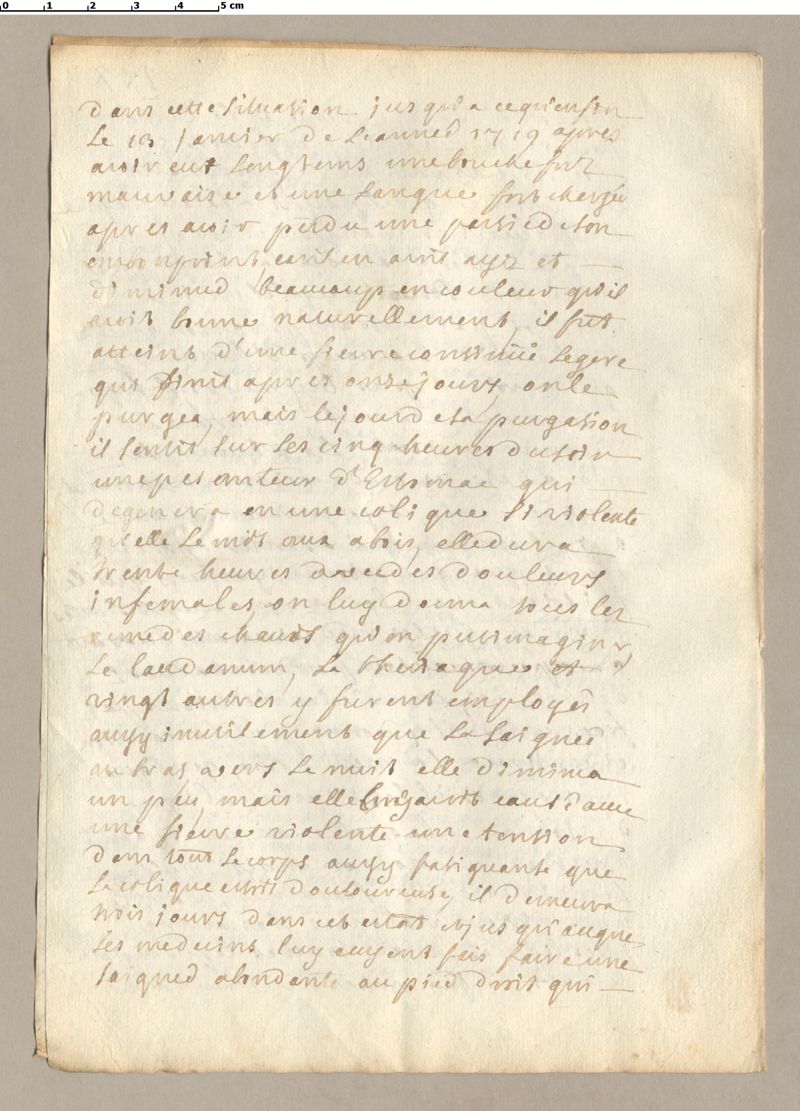 0 1 2 3 4 5 cm
dans cette situation jusqu'a cequ'enfin
Le 13 Janvier de Leanneé 1719 apres
avoir eut Longtems unebouche fort
mauvaise et une Langue fort chargée
apres avoir perdu une partie deson
embonpoint, tant en avoit ayz et
diminué beaucoup en couleur qu'il
avoit bonne naturellement, il fut
atteint d'une fievre continüe Legere
qui finit apres onze jours, on le
purgea, mais lejour desa purgation
il sentit sur Les cinq heures du soir
une pesanteur d'Estomac qui
degenera en une colique si violente
qu'elle Le mit aux abois, elle dura
trente heures avec des douleurs
infernales, on luy donna tous les
remedes chauds qu'on put imaginer,
Le laudanum, La theriaque et
vingt autres y furent employés
aussy inutilement que La saigneé
au bras, vers La nuit elle diminua
un peu, mais elle luy avoit causé avec
une fievre violente une tension
dans tout Le corps aussy fatiguante que
La colique estoit douloureuse, il demeura
trois jours dans cet estat et jusqu'auque
Les medecins luy eussent fait faire une
saigneé abondante au pied droit qui